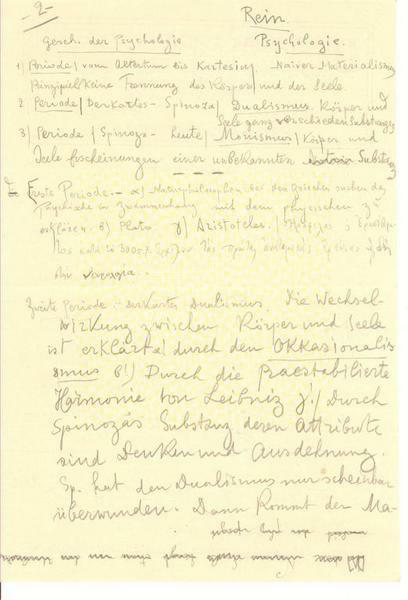 -2-
Rein
Gesch. der Psychologie Psychologie.
1) Periode/ vom Altertum bis Kartesius Naiver Materialismus
Prinzipiell Keine Trennung des Körpers/ und der Seele.
2 Periode/ Derkartes-Spinoza/ Dualismus. Körper und
Seele ganz verschieden Substanzen
3) Periode/ Spinoza- heute/ Monismus/ Körper und
Seele Erscheinungen einer unbekannten Substanz
I Erste Periode.- α) Naturphilosophen bei den Griechen suchen das
Psychische in Zusammenhang mit dem physischen zu
erklären. β) Plato γ) Aristoteles.
Zweite Periode.- Derkartes Dualismus. Die Wechsel-
wirkung zwischen Körper und Seele
ist erklärt α/ durch den OKKasionalis
mus β!) Durch die Praestabilierte
Harmonie von Leibniz γ!/ Durch
Spinozas Substanz deren Attribute
sind Denken und Ausdehnung.
Sp. hat den Dualismus nur scheinbar
überwunden. Dann Kommt der Ma-